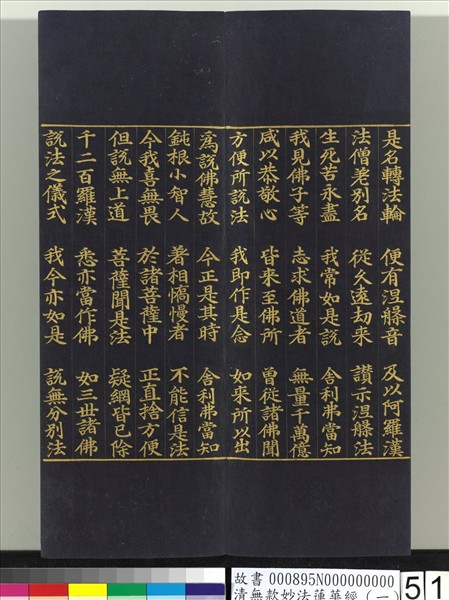 是名轉法輪　便有涅槃音　及以阿羅漢
法僧差別名　從久遠劫來　讚示涅槃法
生死苦永盡　我常如是說　舍利弗當知
我見佛子等　志求佛道者　無量千萬億
咸以恭敬心　皆來至佛所　曾從諸佛聞
方便所說法　我即作是念　如來所以出
為說佛慧故　今正是其時　舍利弗當知
鈍根小智人　著相憍慢者　不能信是法
今我喜無畏　於諸菩薩中　正直捨方便
但說無上道　菩薩聞是法　疑網皆已除
千二百羅漢　悉亦當作佛　如三世諸佛
說法之儀式　我今亦如是　說無分別法
故書 000895N000000000
清無款妙法蓮華經（一）
51